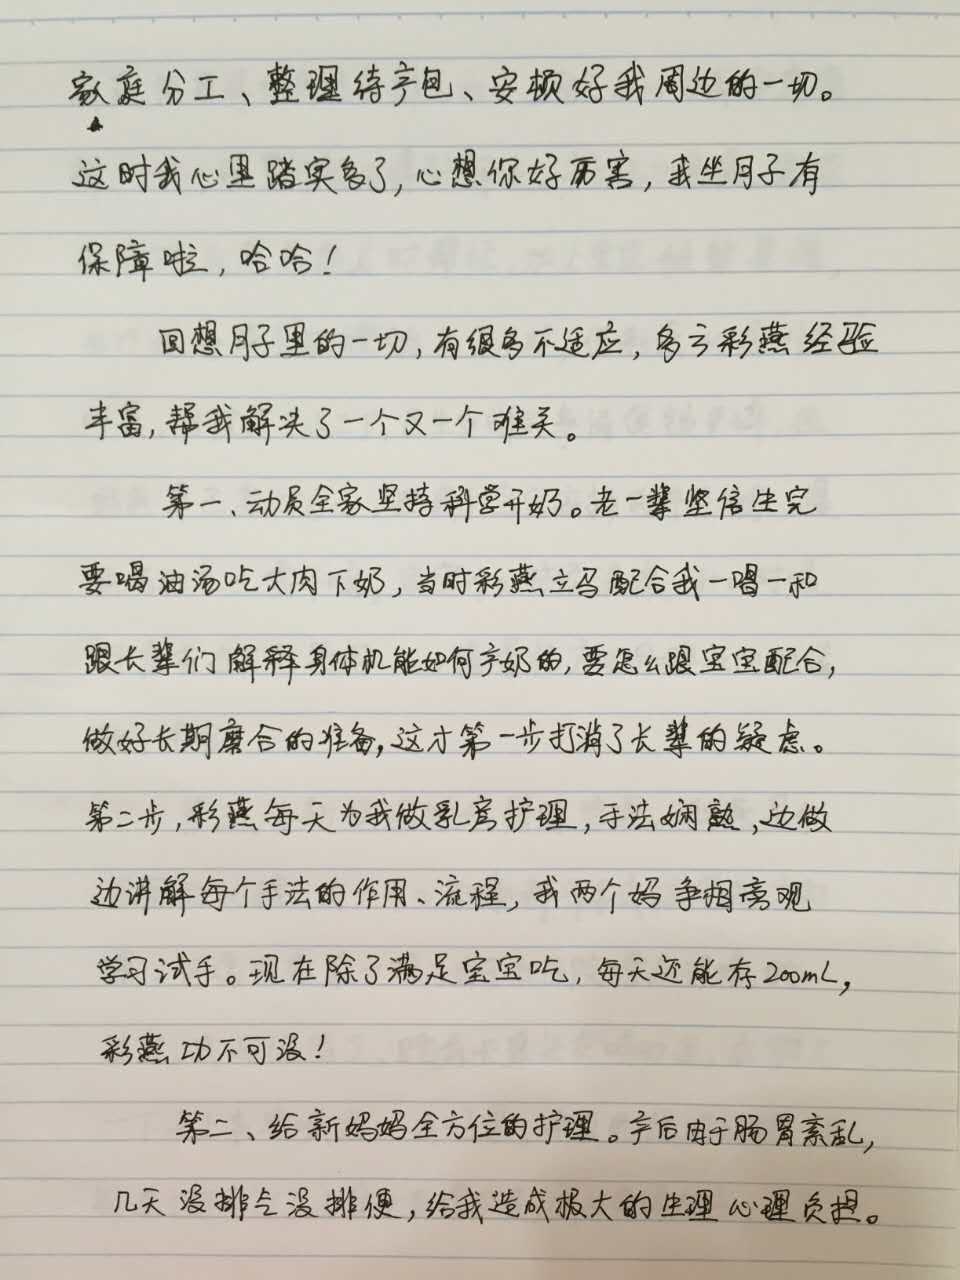 家庭分工、整理待产包、安顿好我周边的一切。
这时我心里踏实多了，心想你好厉害，我坐月子有
保障啦，哈哈！
回想月子里的一切，有很多不适应，多亏彩燕经验
丰富，帮我解决了一个又一个难关。
第一、动员全家坚持科学开奶。老一辈坚信生完
要喝油汤吃大肉下奶，当时彩燕立马配合我一唱一和
跟长辈们解释身体机能如何产奶的，要怎么跟宝宝配合，
做好长期磨合的准备，这才第一步打消了长辈的疑虑。
第二步，彩燕每天为我做乳房护理，手法娴熟，边做
边讲解每个手法的作用、流程，我两个妈争相旁观
学习试手。现在除了满足宝宝吃，每天还能存200mL，
彩燕功不可没！
第二、给新妈妈全方位的护理。产后由于肠胃紊乱，
几天没排气没排便，给我造成极大的生理心理负担。